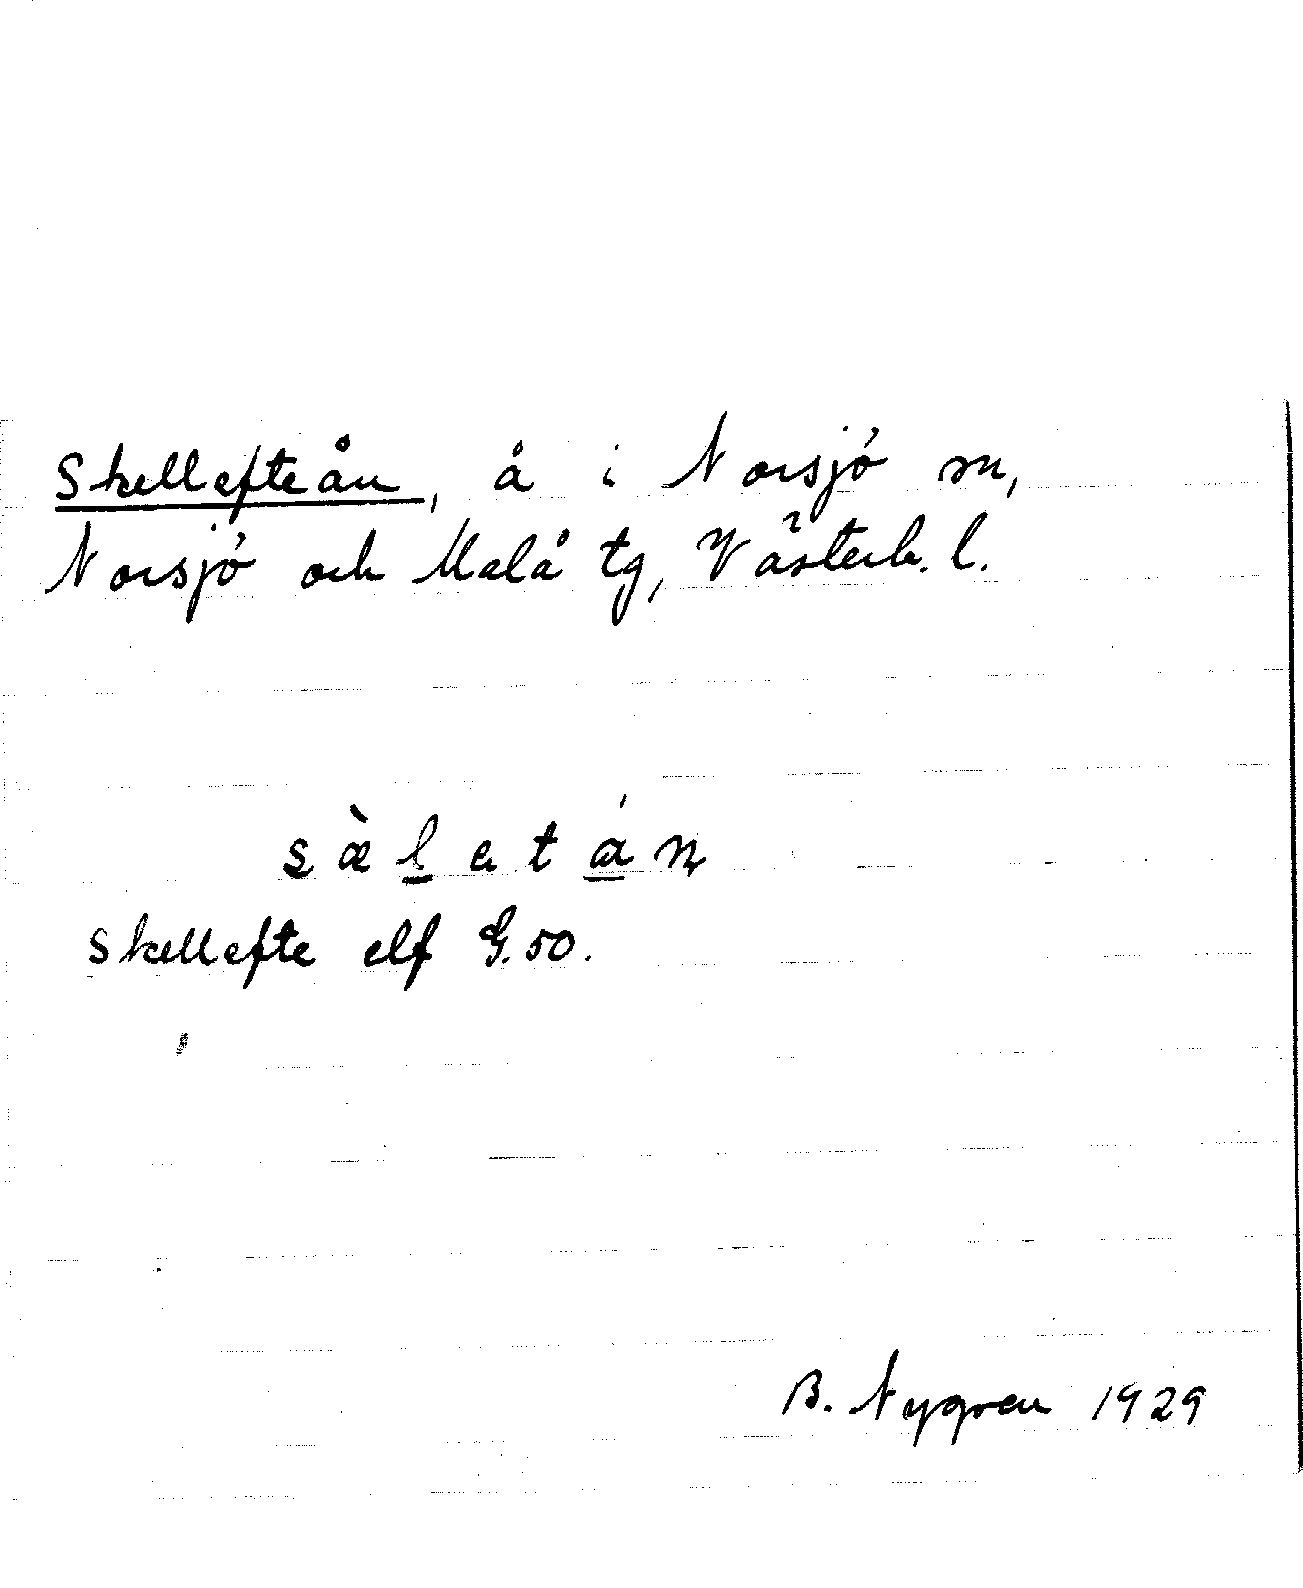 Skellefteån, å i Norsjö sn,
Norsjö och Malå tg, Västerb. l.
sæ̀l̲etá̲n
Skellefte elf G.50.
B. Nygren 1929